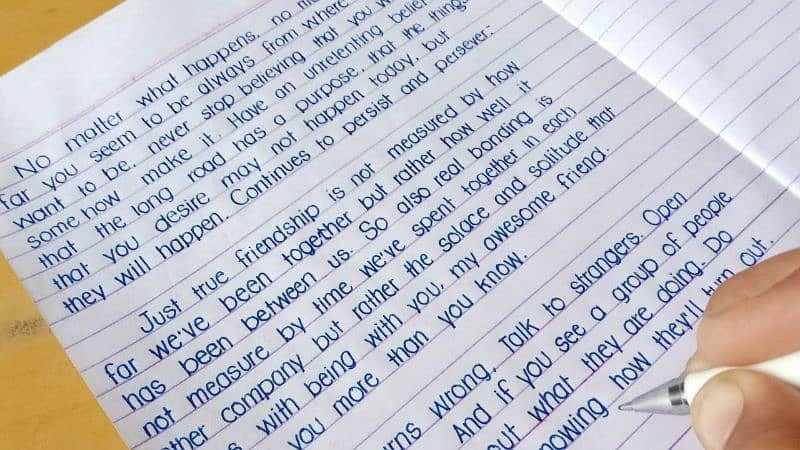 No matter what happens, no
far you seem to be always from where
want to be, never stop believing that you
some how make it. Have an unrelenting belief
that the long road has a purpose, that the things
that you desire may not happen today, but
they will happen. Continues to persist and persever:
Just true friendship is not measured by how
far we've been together but rather how well it
has been between us. So also real bonding is
not measure by time we've spent together in each
other company but rather the solace and solitude that
with being with you, my awesome friend.
you more than you know.
wrong, Talk to strangers. Open
And if you see a group of people
out what they are doing. Do
how they'll turn out.